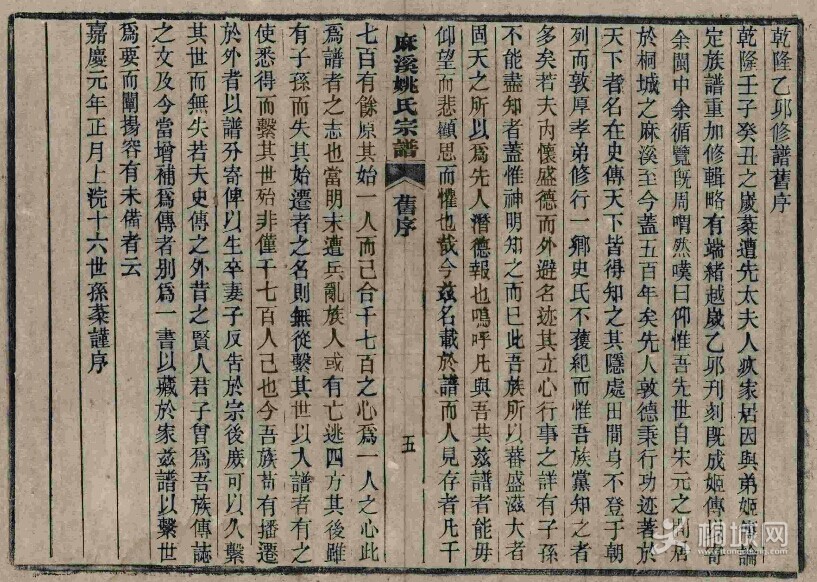 乾隆乙卯修譜舊序
乾隆壬子癸丑之歲鼐遭先太夫人疚家居因與弟姬傳論
定族譜重加修輯略有端緒越歲乙卯刊刻既成姬傳
余閩中余循覽既周喟然嘆曰仰惟吾先世自宋元之引居
於桐城之麻溪至今蓋五百年矣先人敦德秉行功迹著於
天下者名在史傳天下皆得知之其隱處田間身不登于朝
列而敦厚孝弟修行一鄉史氏不獲紀而惟吾族黨知之者
多矣若夫内懷盛德而外避名迹其立心行事之詳有子孫
不能盡知者蓋惟神明知之而已此吾族所以蕃盛滋大者
固天之所以爲先人潛德報也嗚呼凡與吾共兹譜者能毋
仰望而悲顧思而懼也哉今兹名載於譜而人見存者凡千
麻溪姚氏宗譜 舊序 五
七百有餘原其始一人而已合千七百之心爲一人之心此
爲譜者之志也當明末遭兵亂族人或有亡逃四方其後雖
有子孫而失其始遷者之名則無從繫其世以入譜者有之
使悉得而繫其世殆非僅千七百人已也今吾族苗有播遷
於外者以譜分寄俾以生卒妻子反告於宗後庶可以久繫
其世而無失若夫史傳之外昔之賢人君子曾爲吾族傳誌
之文及今當增補爲傳者别爲一書以藏於家兹譜以繫世
爲要而闡揚容有未備者云
嘉慶元年正月上浣十六世孫棻謹序
桐城网
itongcheng.cc